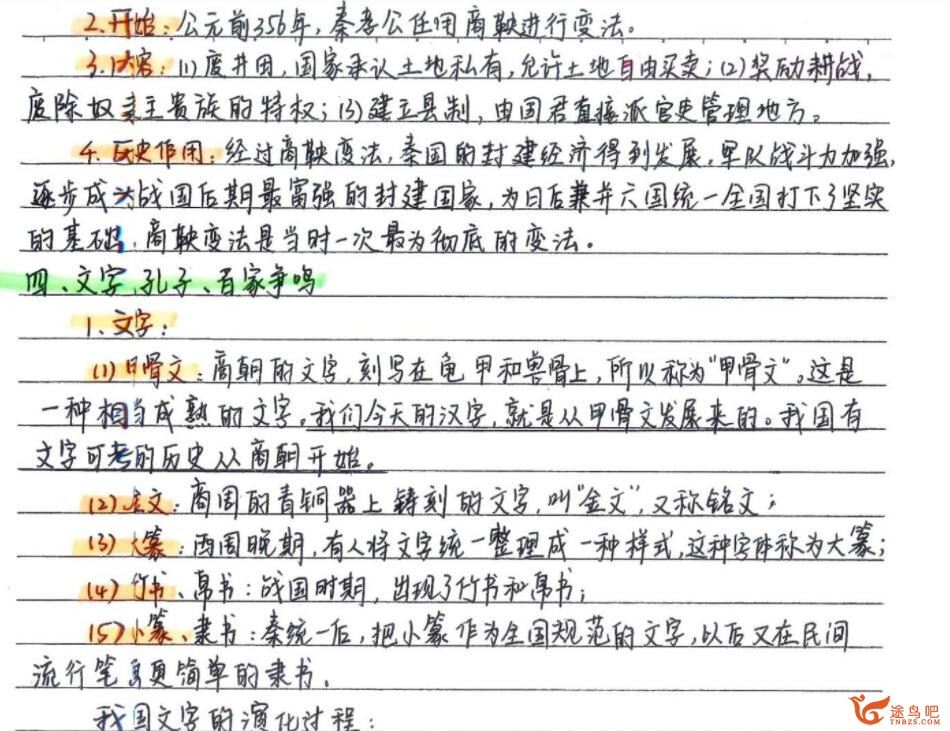 2.开始：公元前356年，秦孝公任用商鞅进行变法。
3.内容：(1)废井田，国家承认土地私有，允许土地自由买卖；(2)奖励耕战，
废除奴隶主贵族的特权；(3)建立县制，由国君直接派官吏管理地方。
4.历史作用：经过商鞅变法，秦国的封建经济得到发展，军队战斗力加强，
逐步成为战国后期最富强的封建国家，为日后兼并六国统一全国打下了坚实
的基础，商鞅变法是当时一次最为彻底的变法。
四、文字、孔子、百家争鸣
1.文字：
(1)甲骨文：商朝的文字，刻写在龟甲和兽骨上，所以称为"甲骨文"。这是
一种相当成熟的文字。我们今天的汉字，就是从甲骨文发展来的。我国有
文字可考的历史从商朝开始。
(2)金文：商周的青铜器上铸刻的文字，叫"金文"，又称铭文；
(3)大篆：西周晚期，有人将文字统一整理成一种样式，这种字体称为大篆；
(4)竹书、帛书：战国时期，出现了竹书和帛书；
(5)小篆、隶书：秦统一后，把小篆作为全国规范的文字，以后又在民间
流行笔画更简单的隶书.
我国文字的演化过程：
途鸟吧
TNBZS.COM